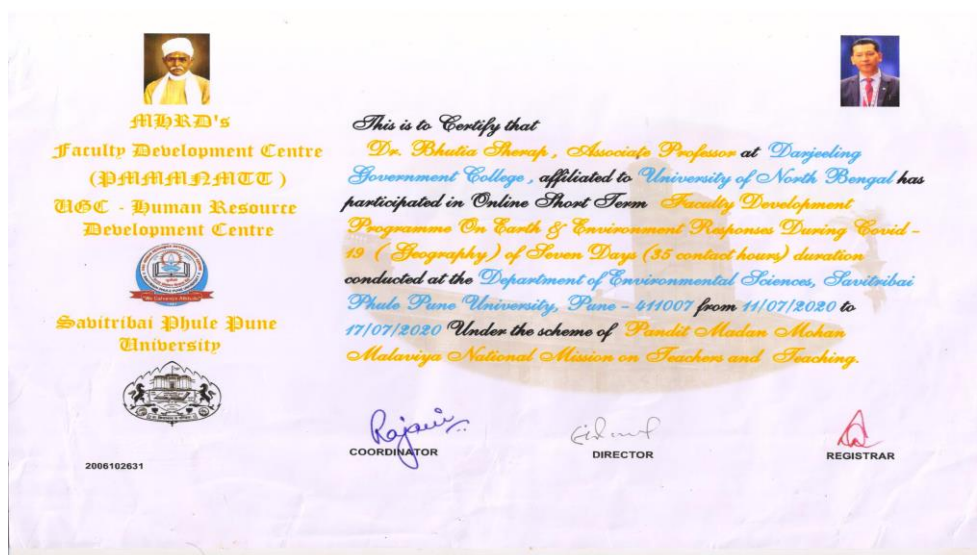 MHRD's
Faculty Development Centre
(PMMMNMTT)
UGC - Human Resource
Development Centre
Savitribai Phule Pune
University
2006102631
This is to Certify that
Dr. Bhutia Sherap, Associate Professor at Darjeeling
Government College, affiliated to University of North Bengal has
participated in Online Short Term Faculty Development
Programme On Earth & Environment Responses During Covid -
19 ( Geography) of Seven Days (35 contact hours) duration
conducted at the Department of Environmental Sciences, Savitribai
Phule Pune University, Pune - 411007 from 11/07/2020 to
17/07/2020 Under the scheme of Pandit Madan Mohan
Malaviya National Mission on Teachers and Teaching.
Rajani
COORDINATOR
DIRECTOR
REGISTRAR